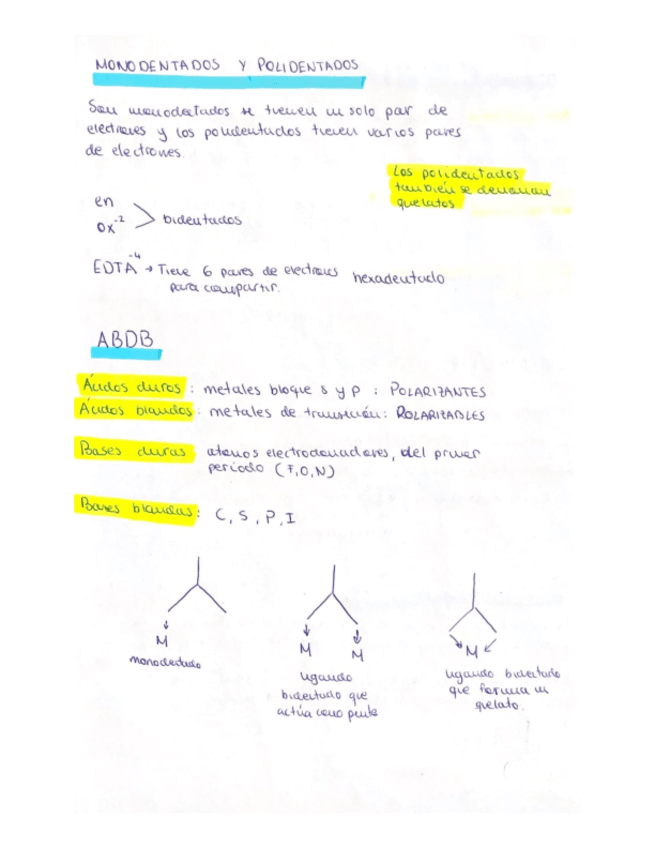 MONODENTADOS Y POLIDENTADOS
Son monodentados si tienen un solo par de
electrones y los polidentados tienen varios pares
de electrones.
Los polidentados
también se denominan
quelatos
en
Ox⁻²
> bidentados
EDTA⁻⁴ → Tiene 6 pares de electrones hexadentado
para compartir.
ABDB
Ácidos duros : metales bloque s y p : POLARIZANTES
Ácidos blandos : metales de transición : POLARIZABLES
Bases duras atomos electrodonadores, del primer
período (F,O,N)
Bases blandas : C, S, P, I
M
monodentado
M M
ligando
bidentado que
actúa como puente
M
ligando bidentado
que forma un
quelato.